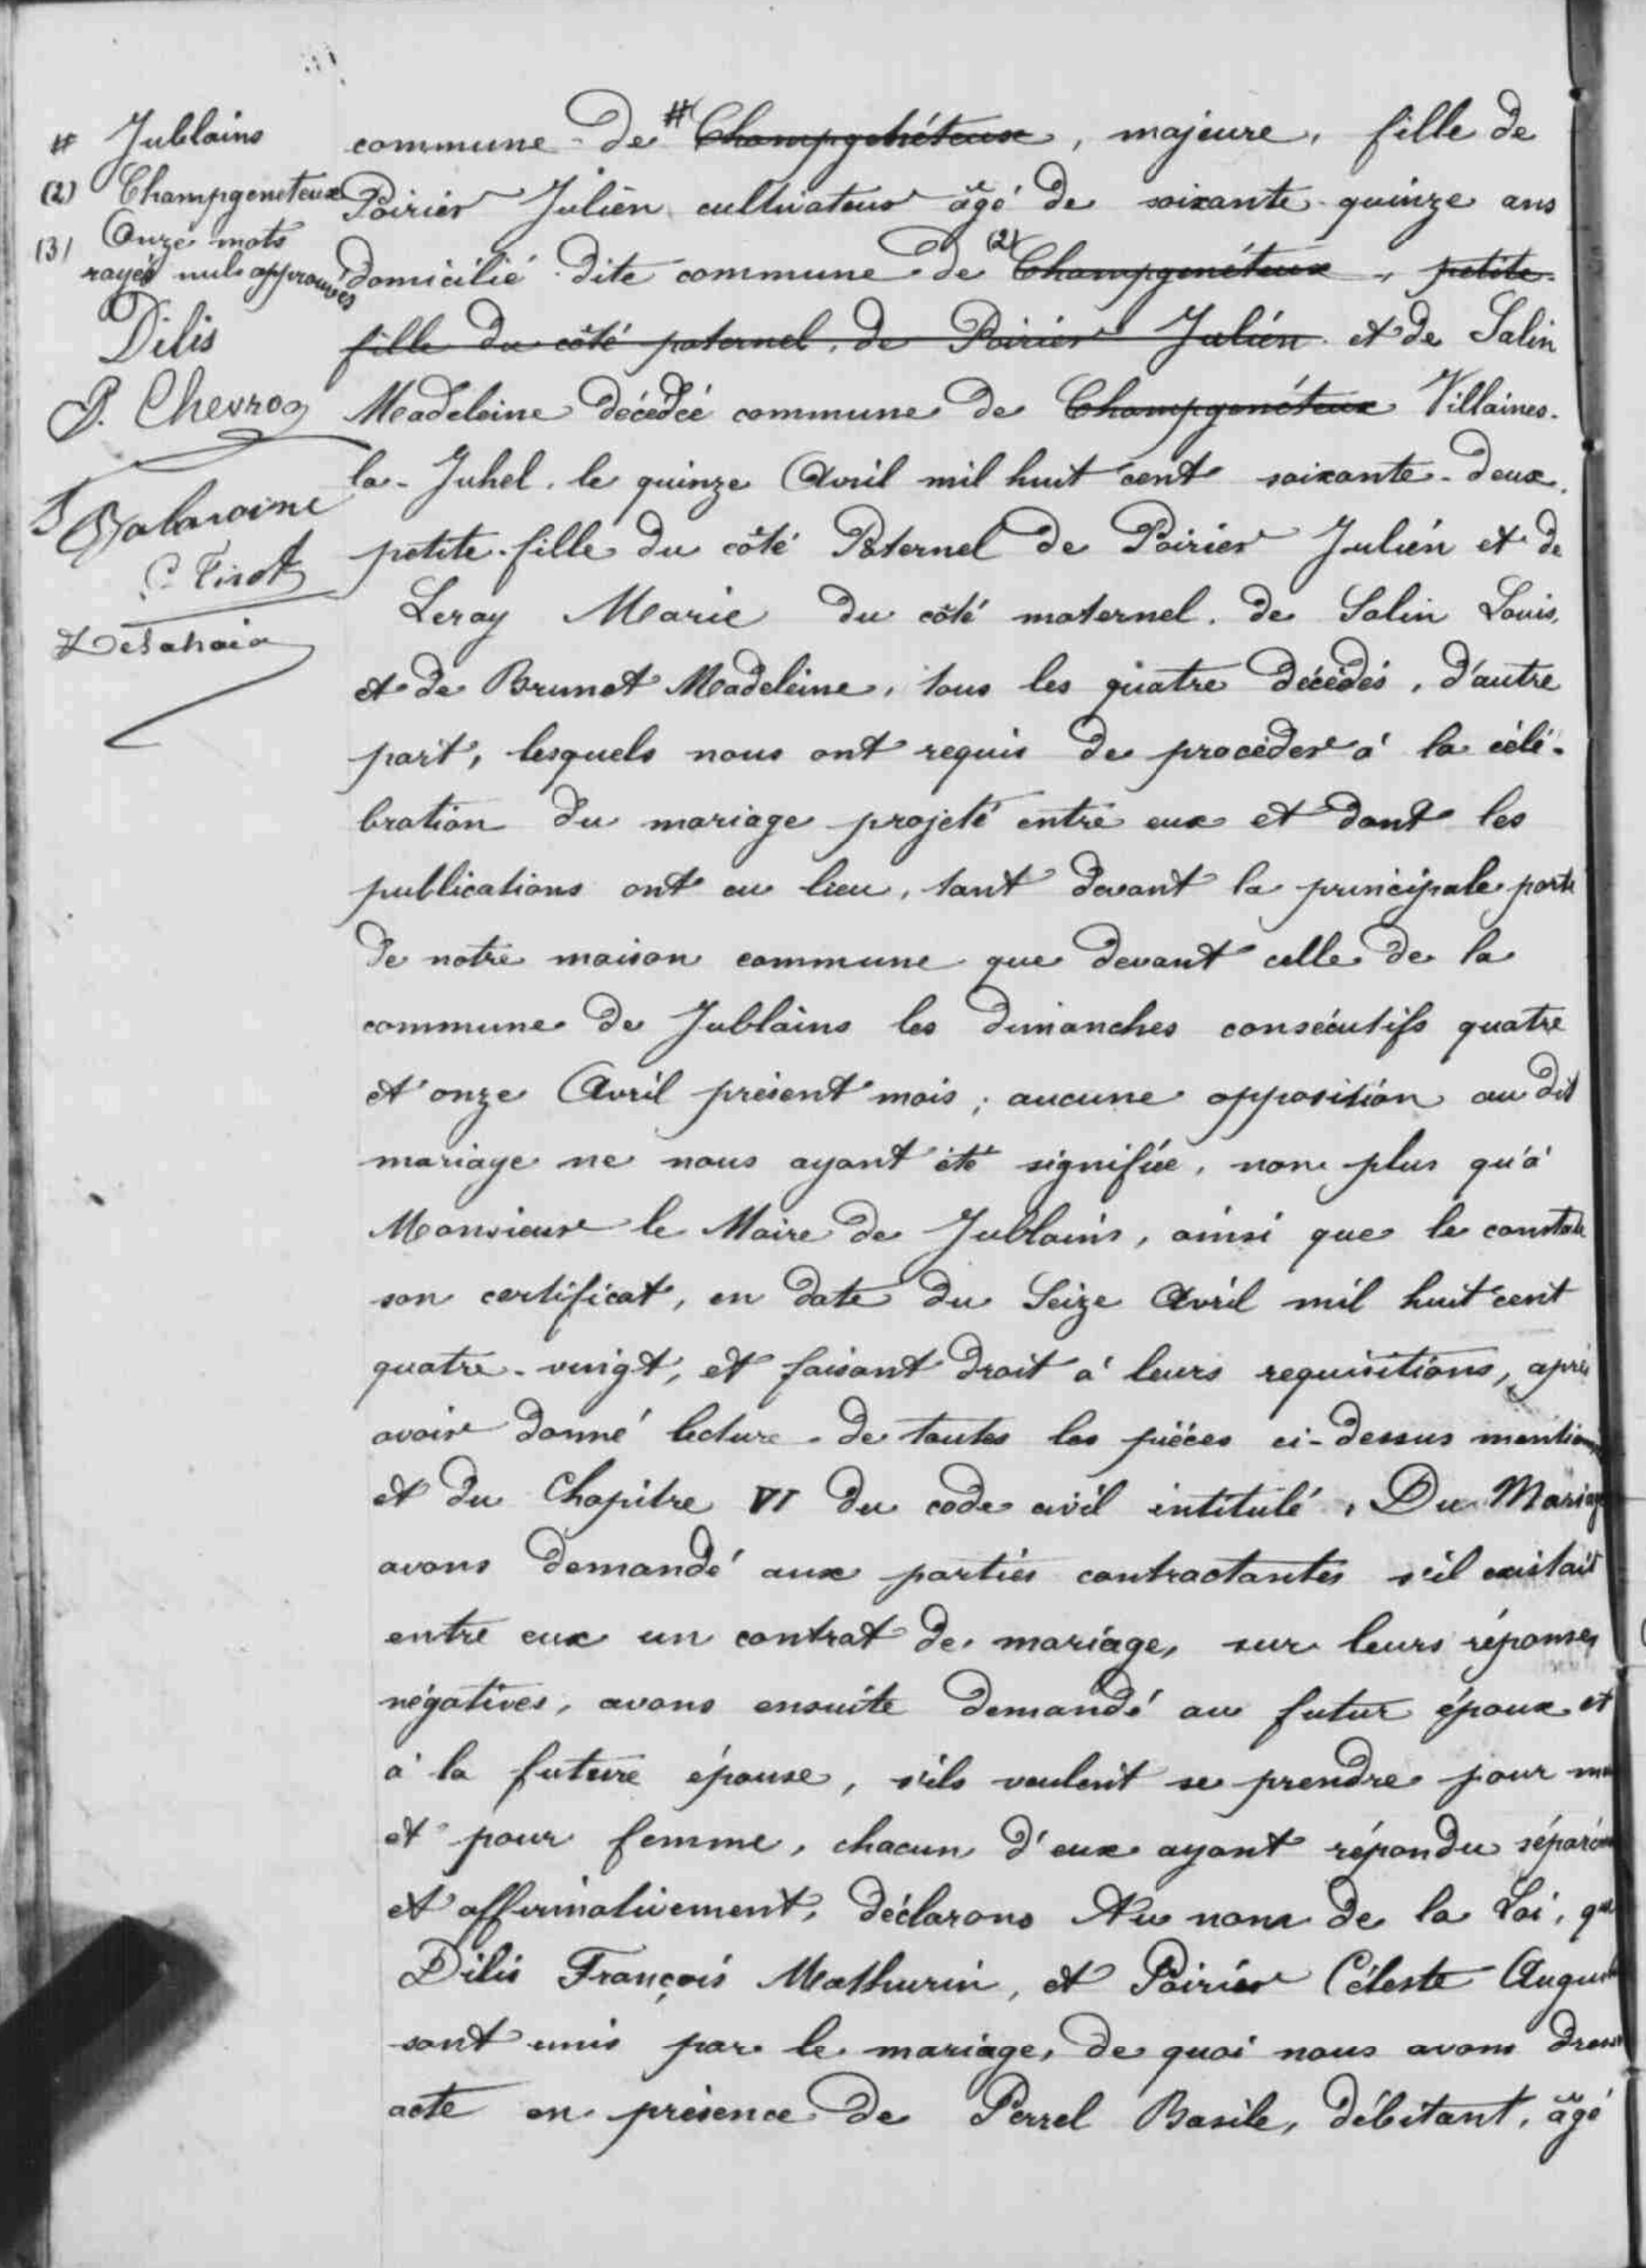 # Jublains
(2) Champgeneteux
(3) Onze mots
rayés nuls approuvés
Dilis
P. Chevron
C. Tirot
commune de # Champgenéteux, majeure, fille de
Poirier Julien cultivateur âgé de soixante-quinze ans
domicilié dite commune de (2) Champgenéteux, petite-
fille du côté paternel, de Poirier Julien et de Salin
Madeleine décédée commune de Champgenéteux Villaines-
la-Juhel, le quinze Avril mil huit cent soixante-deux,
petite-fille du côté Paternel de Poirier Julien et de
Leray Marie du côté maternel, de Salin Louis,
et de Brunet Madeleine, tous les quatre décédés, d'autre
part, lesquels nous ont requis de procéder à la célé-
bration du mariage projeté entre eux et dont les
publications ont eu lieu, tant devant la principale porte
de notre maison commune que devant celle de la
commune de Jublains les dimanches consécutifs quatre
et onze Avril présent mois; aucune opposition au dit
mariage ne nous ayant été signifiée, non plus qu'à
Monsieur le Maire de Jublains, ainsi que le constate
son certificat, en date du Seize Avril mil huit cent
quatre-vingt, et faisant droit à leurs requisitions, après
avoir donné lecture de toutes les pièces ci-dessus mention
et du Chapitre VI du code civil intitulé, Du Mariage
avons demandé aux parties contractantes s'il existait
entre eux un contrat de mariage, sur leurs réponses
négatives, avons ensuite demandé au futur époux et
à la future épouse, s'ils veulent se prendre pour
et pour femme, chacun d'eux ayant répondu séparém
et affirmativement, déclarons Au nom de la Loi, que
Dilis François Mathurin, et Poirier Céleste Augus
sont unis par le mariage, de quoi nous avons dressé
acte en présence de Perrel Basile, débitant, âgé